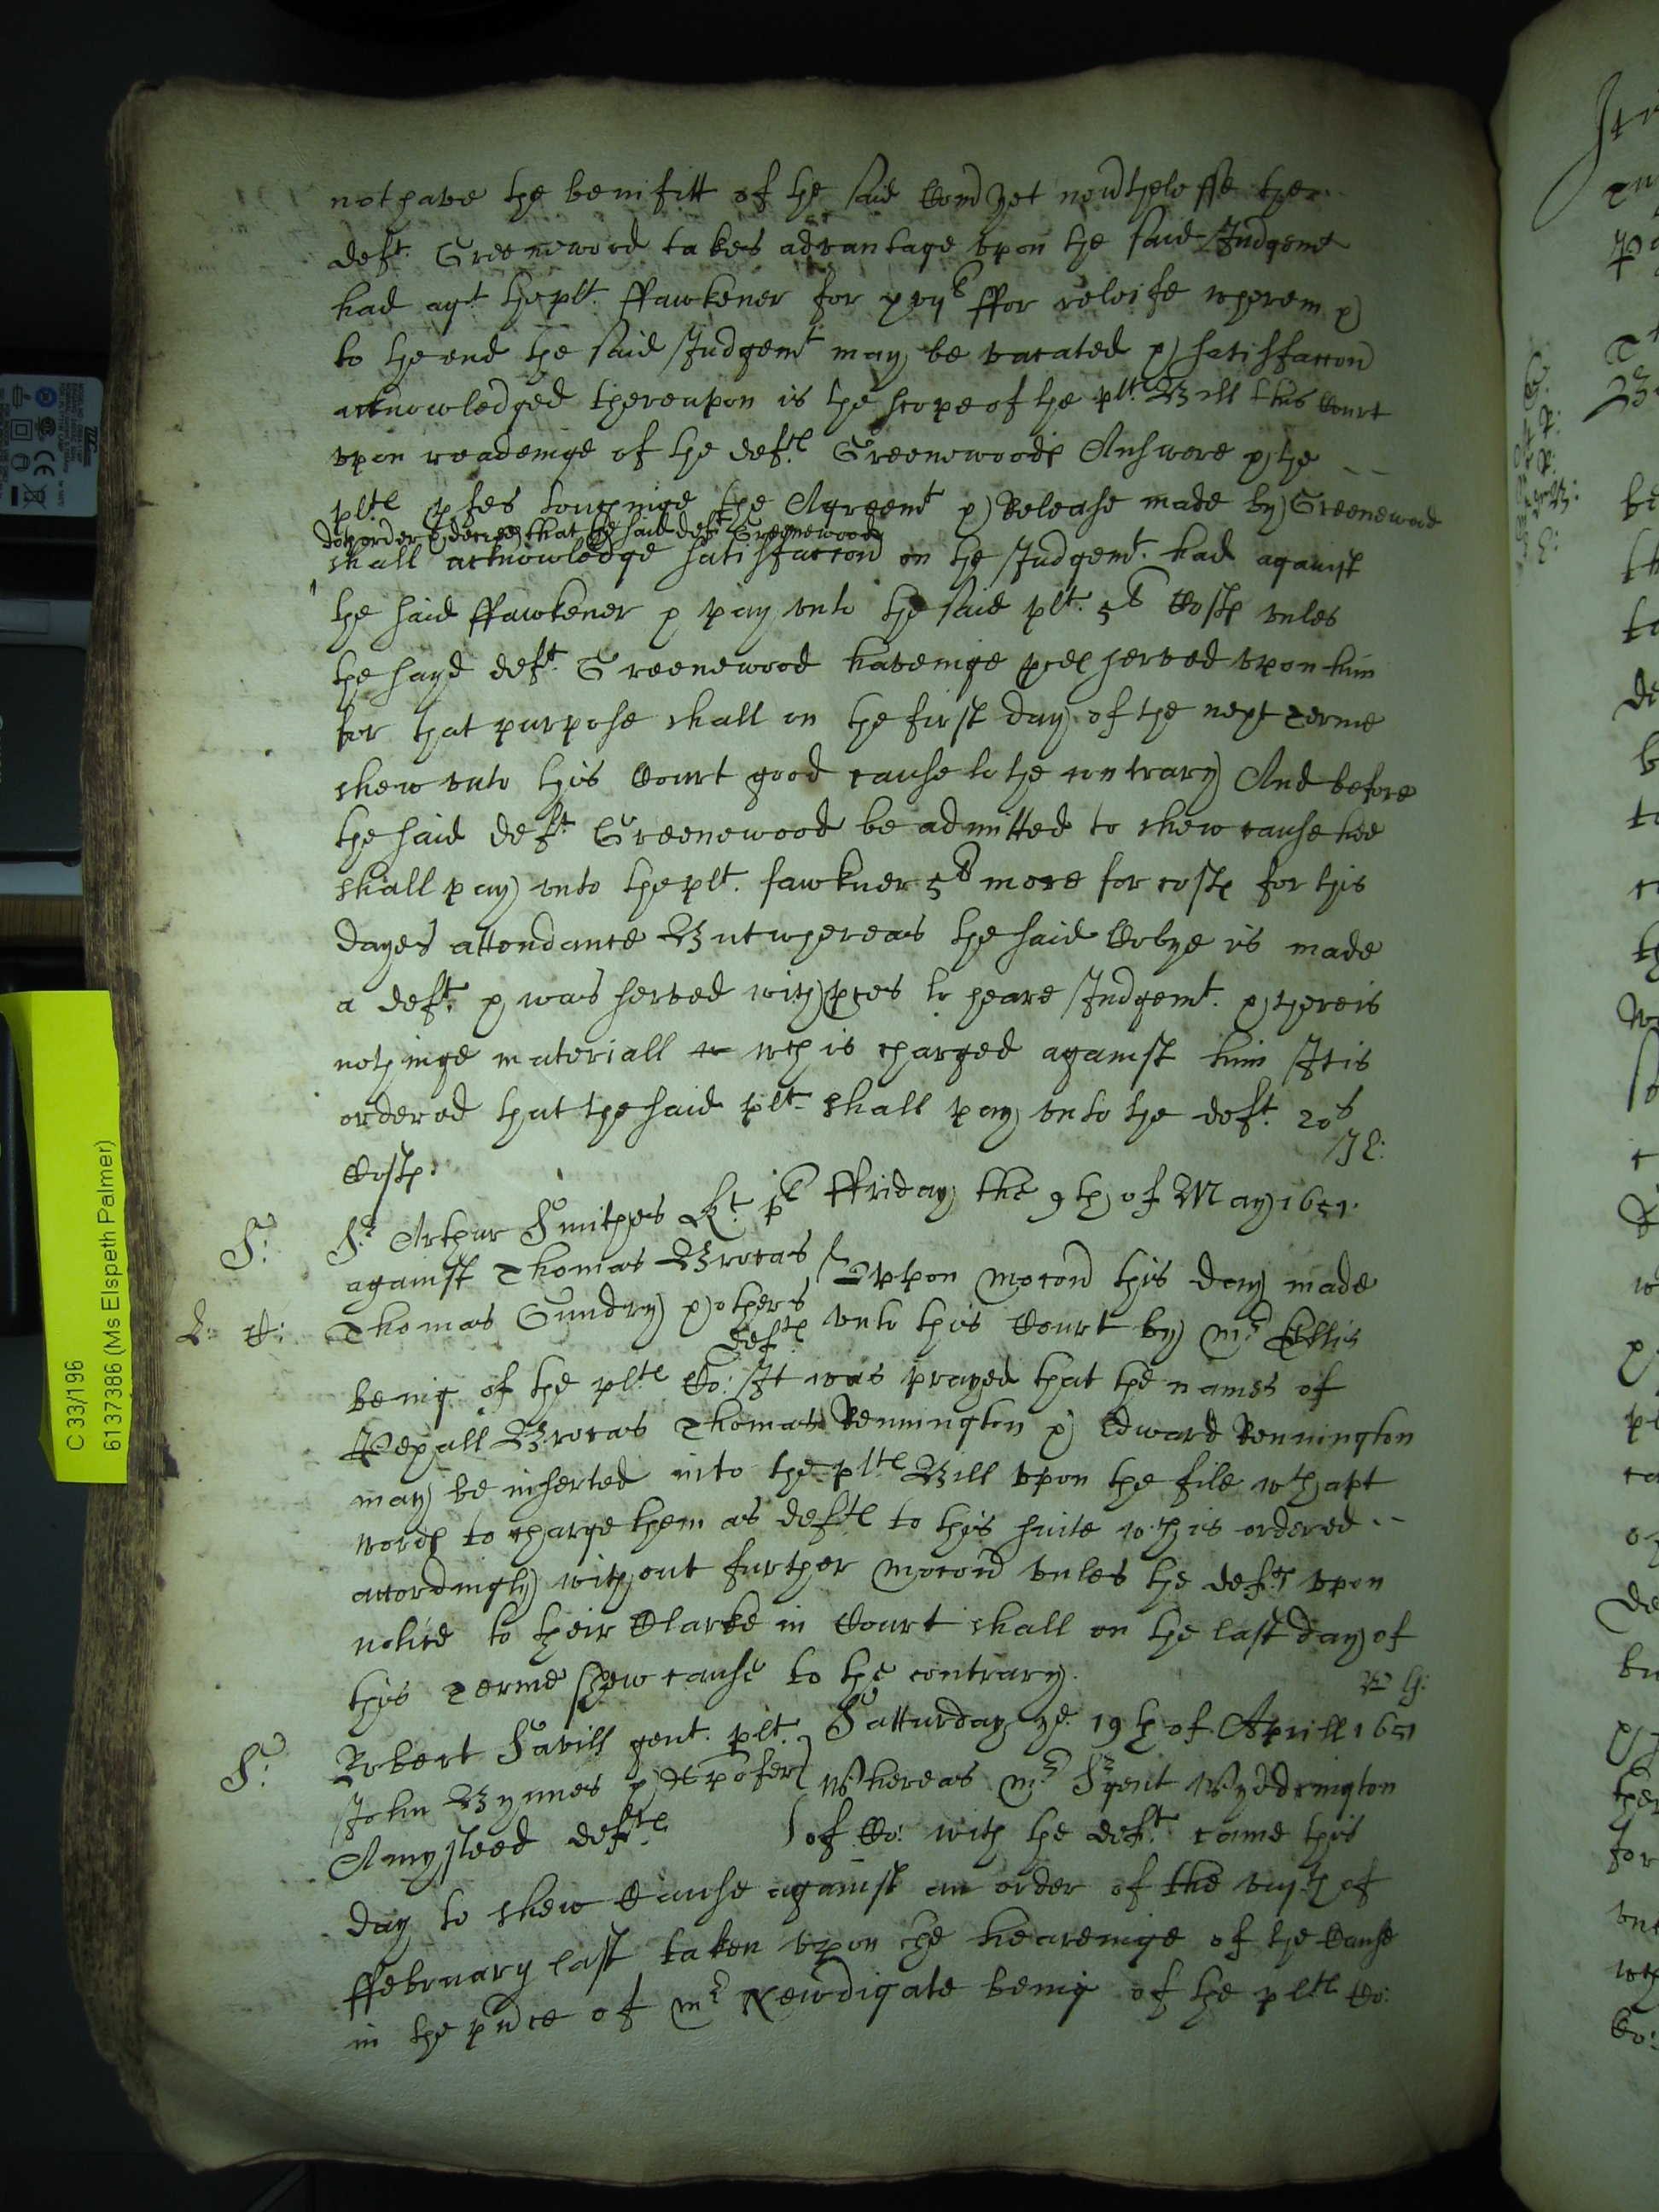 not have the benifitt of the said Cond yet nevthelesse the
deft. Greenewood takes advantage upon the said Judgemt
had agt the plt. ffawkener for ffor releife wherein &
to the end the said Judgemt may be vacated & satisfaccon
acknowledged thereupon is the scope of the plts Bill this Court
upon readeinge of the defts Greenewoods Answere & the --
plts pfes touchinge the Agreemt & Release made by Greenewood
doth order & decree that the said deft Greenewood
shall acknowledge satisfaccon on the Judgemt. had against
the said ffawkener & pay unto the said plt. 5s Costs unles
the sayd deft. Greenewood haveinge pces served upon him
for that purpose shall on the first day of the next terme
shew unto this Court good cause to the contrary And before
the said deft Greenewood be admitted to shew cause hee
shall pay unto the plt. fawkner 5s more for costs for this
dayes attendance But whereas the said Cobye is made
a deft. & was served with pces to heare Judgemt. & there is
nothinge materiall wch is charged against him It is
ordered that the said plt. shall pay unto the deft. 20s
Costs.
S: Sr Arthur Smithes Kt. plt ffriday the 9th of May 1651.
against Thomas Brocas Uppon mocon this day made
L: C: Thomas Gundry & others defts unto this Court by Mr Ellis
being of the plts Co: It was prayed that the names of
Pexall Brocas Thomas Bennington & Edward Bennington
may be inserted into the plts Bill upon the file wth apt
words to charge them as defts to this suite wch is ordered --
accordingly without further mocon unles the defts upon
notice to their Clarke in Court shall on the last day of
this terme shew cause to the contrary.
S: Robert Savill gent. plt. Satturday ye. 19th of Aprill 1651
John Bynnes & Whereas Mr Srgent Wyddrington
Amysteed defts of Co: with the deft. came this
day to shew Cause against an order of the of
ffebruary last taken upon the heareinge of the Cause
in the pnce of Mr Newdigate being of the plts Co:
C 33/196
61373786 (Ms Elspeth Palmer)